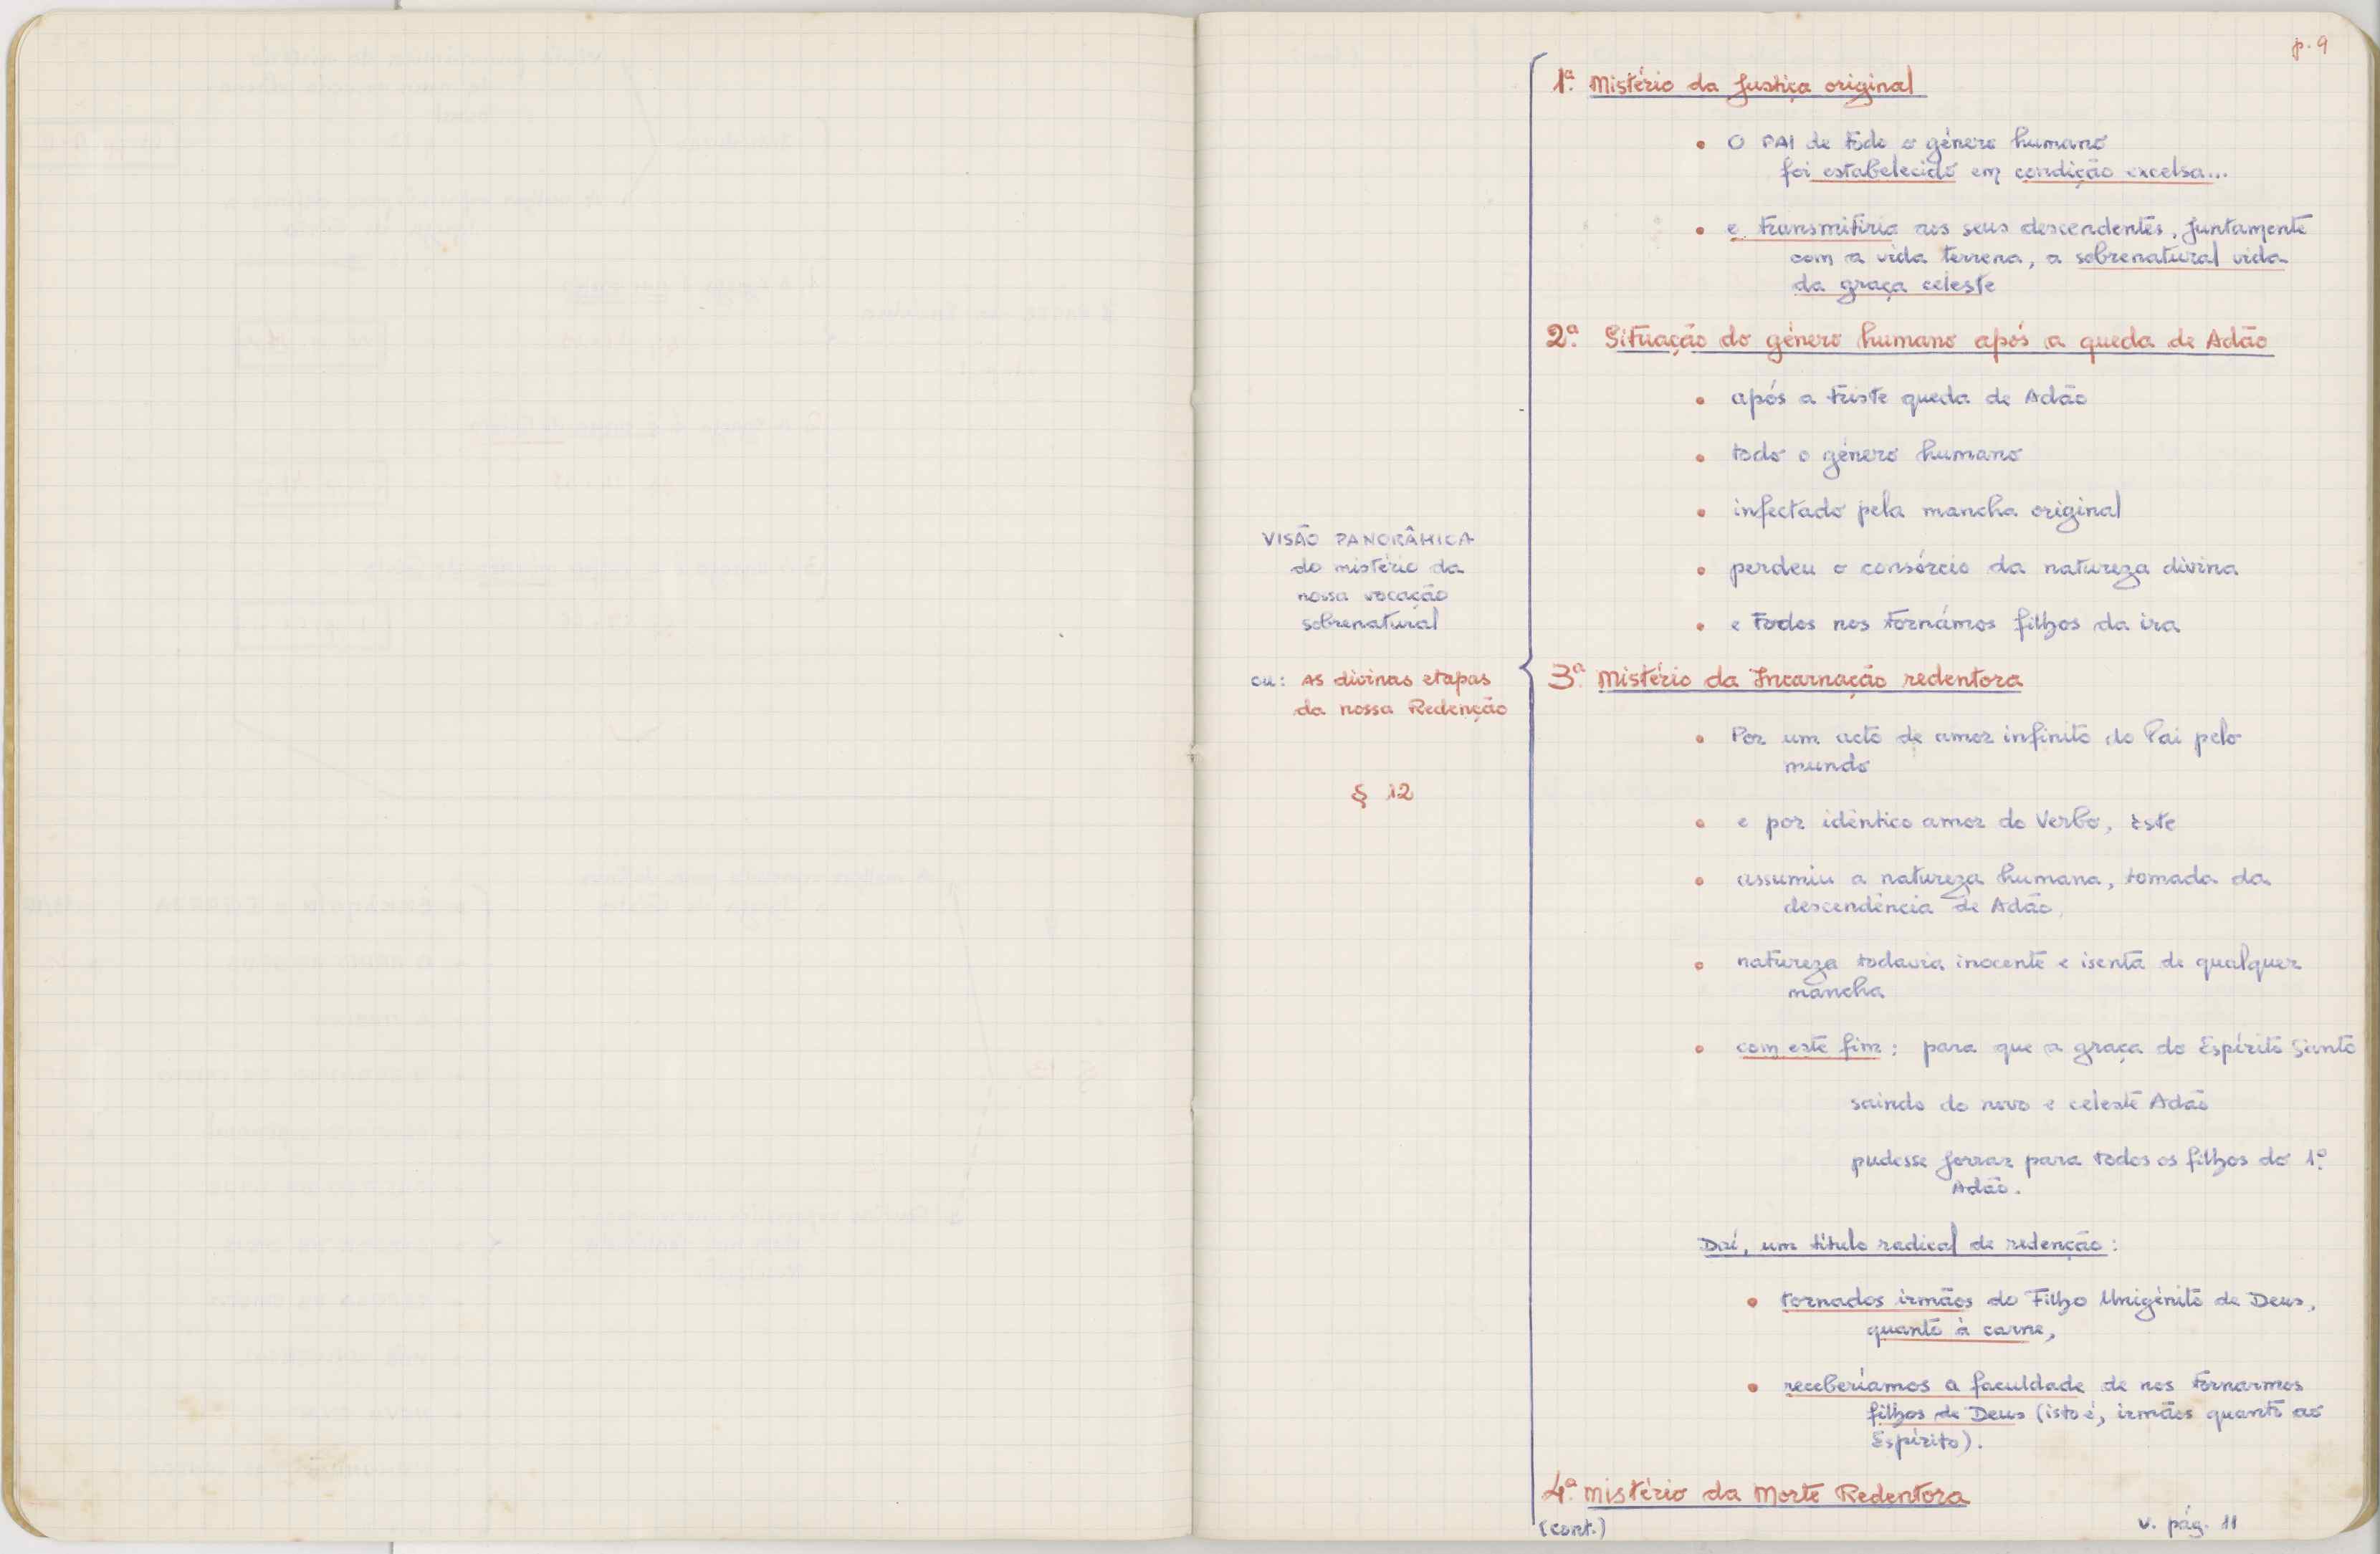 p. 9
VISÃO PANORÂMICA
do mistério da
nossa vocação
sobrenatural
ou: As divinas etapas
da nossa Redenção
§ 12
1ª. Mistério da Justiça original
• O PAI de todo o género humano
foi estabelecido em condição excelsa...
• e transmitiria aos seus descendentes, juntamente
com a vida terrena, a sobrenatural vida
da graça celeste
2ª. Situação do género humano após a queda de Adão
• após a triste queda de Adão
• todo o género humano
• infectado pela mancha original
• perdeu o consórcio da natureza divina
• e todos nos tornámos filhos da ira
3ª. Mistério da Incarnação redentora
• Por um acto de amor infinito do Pai pelo
mundo
• e por idêntico amor do Verbo, êste
• assumiu a natureza humana, tomada da
descendência de Adão,
• natureza todavia inocente e isenta de qualquer
mancha
• com este fim: para que a graça do Espírito Santo
saindo do novo e celeste Adão
pudesse jorrar para todos os filhos do 1º.
Adão.
Daí, um título radical de redenção:
• tornados irmãos do Filho Unigénito de Deus,
quanto à carne,
• receberíamos a faculdade de nos tornarmos
filhos de Deus (isto é, irmãos quanto ao
Espírito).
4ª. Mistério da Morte Redentora
(cont.) v. pág. 11